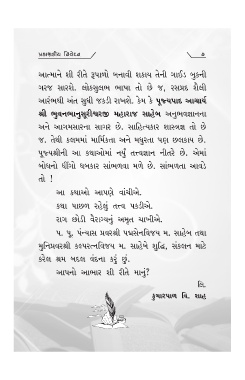 પ્રકાશકીય નિવેદન
૭
આત્માને શી રીતે રૂપાળો બનાવી શકાય તેની ગાઈડ બુકની
ગરજ સારશે. લોકસુલભ ભાષા તો છે જ, રસપ્રદ શૈલી
આરંભથી અંત સુધી જકડી રાખશે. કેમ કે પૂજ્યપાદ આચાર્ય
શ્રી ભુવનભાનુસૂરીશ્વરજી મહારાજ સાહેબ અનુભવજ્ઞાનના
અને આગમસારના સાગર છે. સાહિત્યકાર શાસ્ત્રજ્ઞ તો છે
જ. તેથી કલમમાં માર્મિકતા અને મધુરતા પણ છલકાય છે.
પૂજ્યશ્રીની આ કથાઓમાં નર્યું તત્ત્વજ્ઞાન નીતરે છે. એમાં
બોધનો ધીંગો ધબકાર સાંભળવા મળે છે. સાંભળતા આવડે
તો !
આ કથાઓ આપણે વાંચીએ.
કથા પાછળ રહેલું તત્ત્વ પકડીએ.
રાગ છોડી વૈરાગ્યનું અમૃત ચાખીએ.
પ. પૂ. પંન્યાસ પ્રવરશ્રી પદ્મસેનવિજય મ. સાહેબ તથા
મુનિપ્રવરશ્રી કલ્પરત્નવિજય મ. સાહેબે શુદ્ધિ, સંકલન માટે
કરેલ શ્રમ બદલ વંદના કરું છું.
આપનો આભાર શી રીતે માનું?
લિ.
કુમારપાળ વિ. શાહ